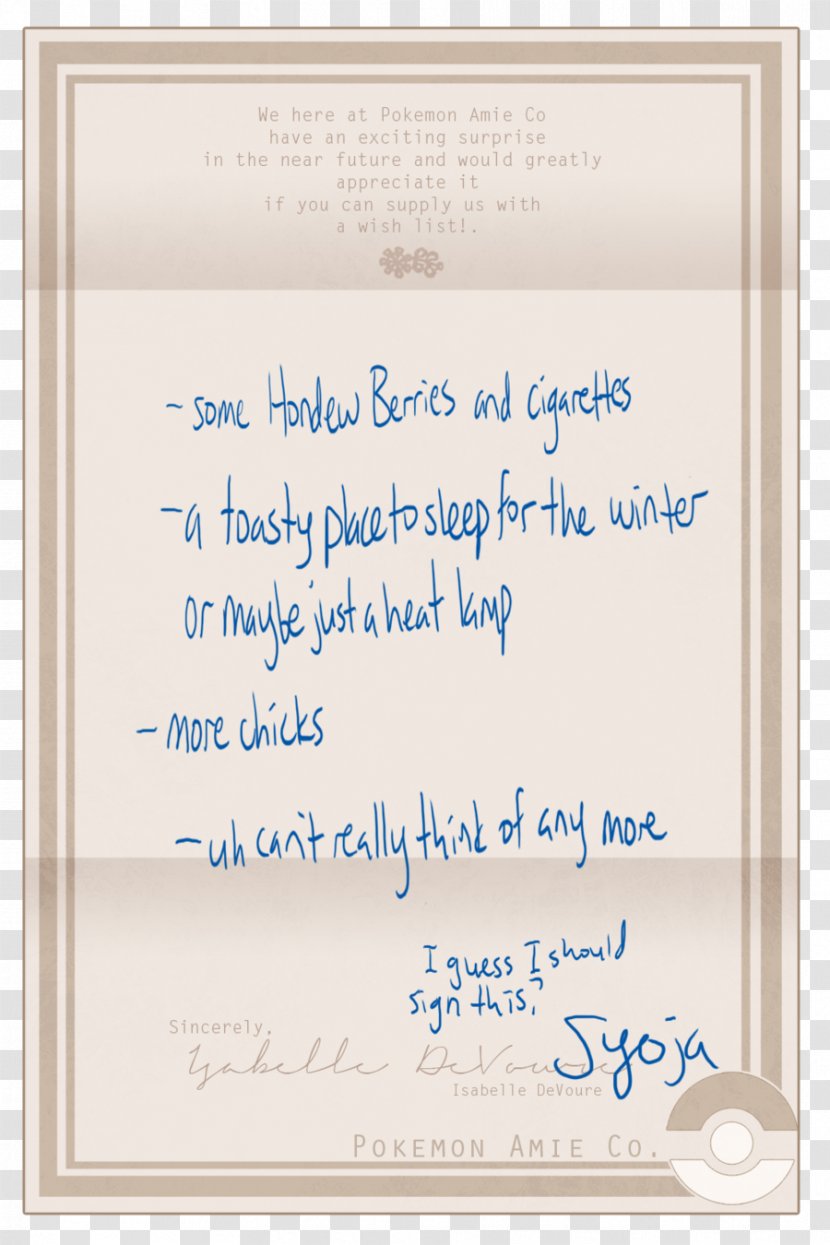 We here at Pokemon Amie Co
have an exciting surprise
in the near future and would greatly
appreciate it
if you can supply us with
a wish list!.
~ some Hondew Berries and cigarettes
- a toasty place to sleep for the winter
or maybe just a heat lamp
- more chicks
- uh can't really think of any more
I guess I should
sign this?
Syoja
Sincerely,
Isabelle DeVoure
Isabelle DeVoure
POKEMON AMIE CO.